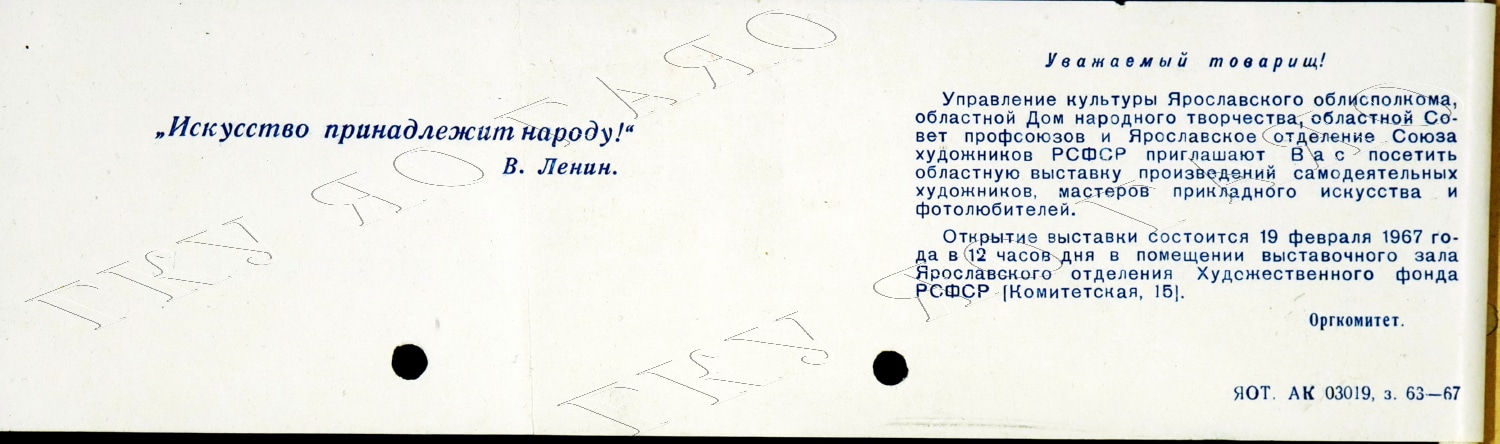 „Искусство принадлежит народу!“
В. Ленин.
Уважаемый товарищ!
Управление культуры Ярославского облисполкома,
областной Дом народного творчества, областной Со-
вет профсоюзов и Ярославское отделение Союза
художников РСФСР приглашают Вас посетить
областную выставку произведений самодеятельных
художников, мастеров прикладного искусства и
фотолюбителей.
Открытие выставки состоится 19 февраля 1967 го-
да в 12 часов дня в помещении выставочного зала
Ярославского отделения Художественного фонда
РСФСР [Комитетская, 15].
Оргкомитет.
ЯОТ. АК 03019, з. 63—67
ГКУ ЯО ГАЯО
ГКУ ЯО ГАЯО